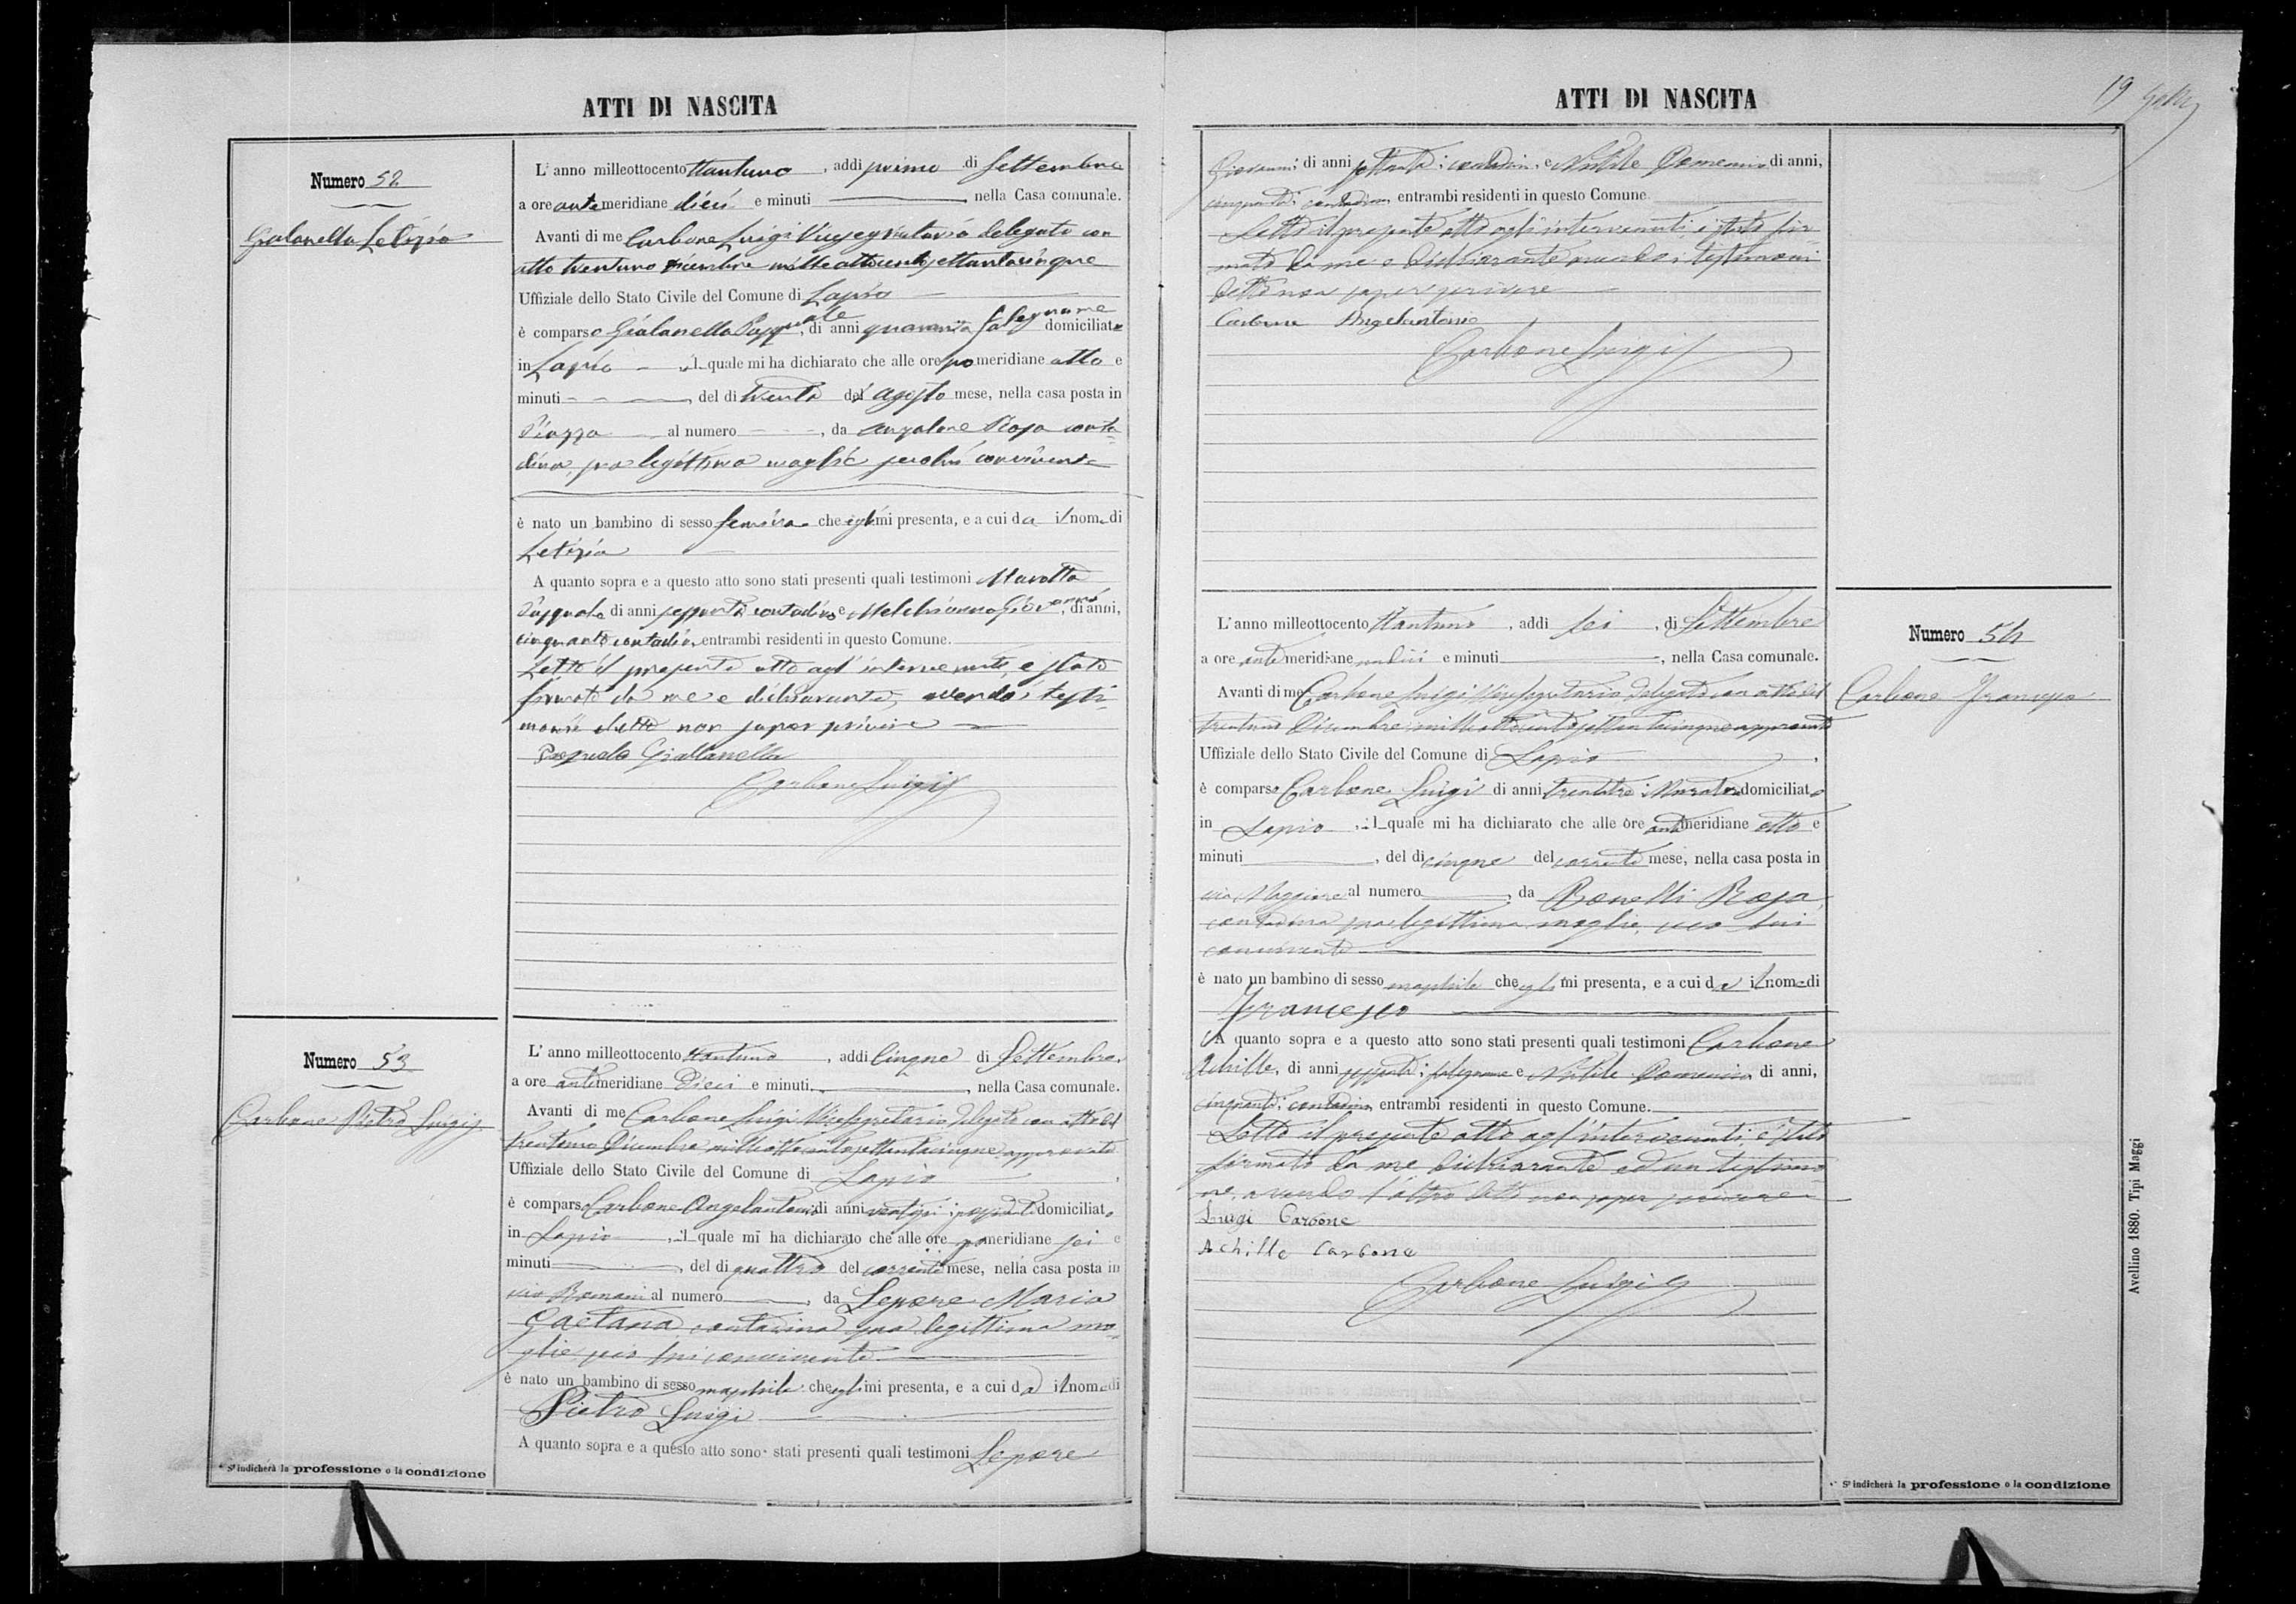 ATTI DI NASCITA
Numero 52
Gialanella Letizia
L'anno milleottocento ttantuno, addi primo di Settembre
a ore antemeridiane dieci e minuti , nella Casa comunale.
Avanti di me Carbone Luigi Vicesegretario delegato con
atto trentuno Dicembre mille ottocento settantacinque
Uffiziale dello Stato Civile del Comune di Lapio
è comparso Gialanella Pasquale, di anni quaranta falegname domiciliato
in Lapio il quale mi ha dichiarato che alle ore pomeridiane otto e
minuti , del di trenta del agosto mese, nella casa posta in
Piazza al numero , da Anzalone Rosa conta=
dina, sua legittima moglie secolui convivente
è nato un bambino di sesso femina che egli mi presenta, e a cui da il nome di
Letizia
A quanto sopra e a questo atto sono stati presenti quali testimoni Marotta
Pasquale di anni sessanta contadino e Melchionna Giovanni, di anni,
cinquanta contadino entrambi residenti in questo Comune.
Letto il presente atto agl'intervenuti, è stato
firmato da me e dichiarante, avendo i testi=
moni detto non saper scrivere
Pasquale Giallanella
Carbone Luigi
Numero 53
Carbone Pietro Luigi
L'anno milleottocento ttantuno , addi Cinque di Settembre,
a ore antemeridiane Dieci e minuti , nella Casa comunale.
Avanti di me Carbone Luigi Vicesegretario delegato con atto del
trentuno Dicembre milleottocentosettantacinque approvato
Uffiziale dello Stato Civile del Comune di Lapio
è comparso Carbone Angelantonio di anni ventisei domiciliato
in Lapio , il quale mi ha dichiarato che alle ore pomeridiane sei e
minuti , del di quattro del corrente mese, nella casa posta in
via Romani al numero , da Lepore Maria
Gaetana, contadina sua legittima mo=
glie, seco lui convivente
è nato un bambino di sesso maschile che egli mi presenta, e a cui dà il nome di
Pietro Luigi
A quanto sopra e a questo atto sono stati presenti quali testimoni Lepore
* Si indicherà la professione o la condizione
ATTI DI NASCITA
19
Giovanni di anni settanta; contadino, e Nutile Domenico di anni,
cinquanta; contadino, entrambi residenti in questo Comune.
Letto il presente atto agli intervenuti, è stato fir=
mato da me e dichiarante avendo i testimoni
detto non saper scrivere
Carbone Angelantonio
Carbone Luigi
L'anno milleottocento ttantuno , addi sei , di Settembre
a ore antemeridiane undici e minuti , nella Casa comunale.
Avanti di me Carbone Luigi Vicesegretario delegato con atto del
trentuno Dicembre milleottocentosettantacinque approvato
Uffiziale dello Stato Civile del Comune di Lapio
è comparso Carbone Luigi di anni trentatre; Muratore domiciliato
in Lapio , il quale mi ha dichiarato che alle ore antimeridiane otto e
minuti , del di cinque del corrente mese, nella casa posta in
via Maggiore al numero , da Bonelli Rosa,
contadina sua legittima moglie, seco lui
convivente
è nato un bambino di sesso maschile che egli mi presenta, e a cui da il nome di
Francesco
A quanto sopra e a questo atto sono stati presenti quali testimoni Carbone
Achille, di anni sessanta; falegname e Nutile Domenico di anni,
cinquanta; contadino entrambi residenti in questo Comune.
Letto il presente atto agl'intervenuti, è stato
firmato da me dichiarante ed un testimo=
ne, avendo l'altro detto non saper scrivere
Luigi Carbone
Achille Carbone
Carbone Luigi
Numero 54
Carbone Francesco
* Si indicherà la professione o la condizione
Avellino 1880. Tipi Maggi